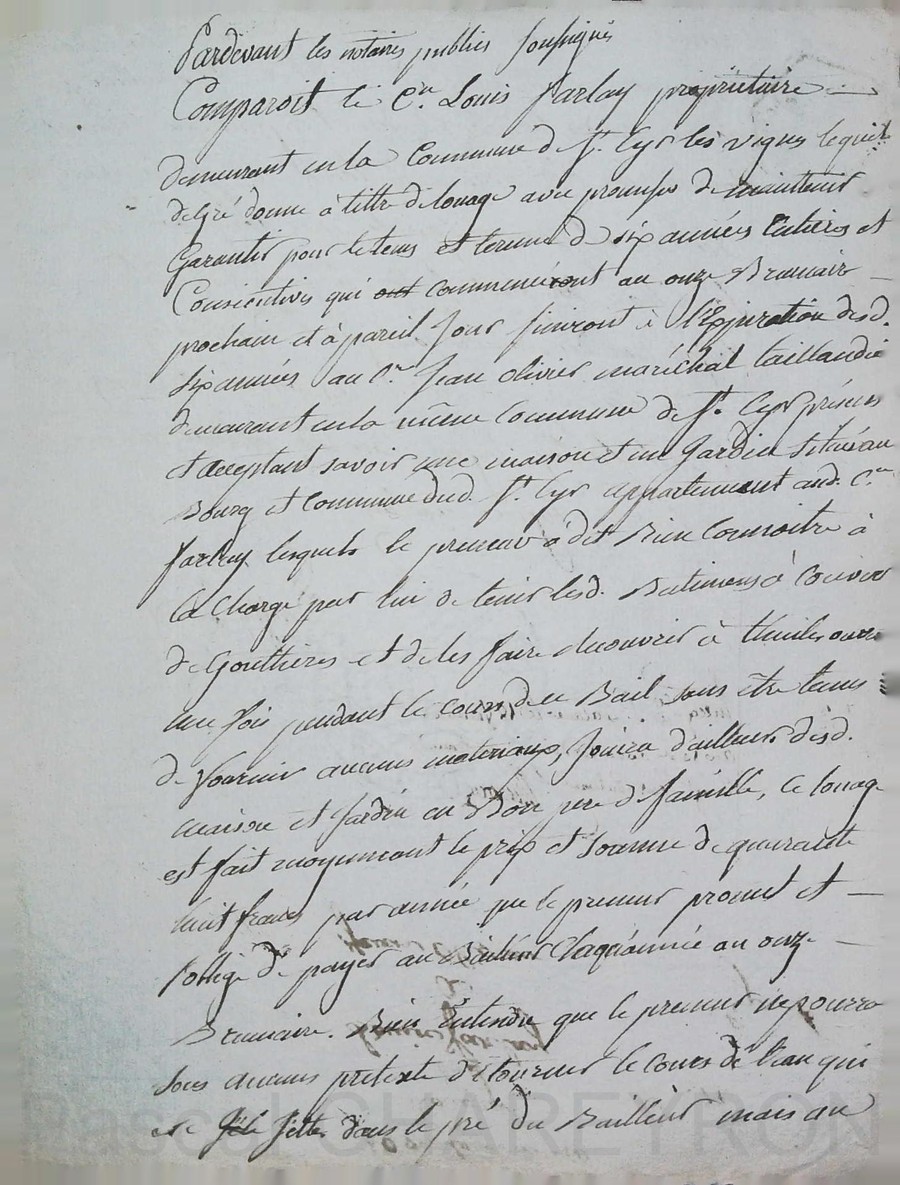 Pardevant les notaires publics soussignés
Comparoit le Cn. Louis Farlay propriétaire
demeurant en la Commune de St. Cyr les vignes lequel
de gré donne à tittre de louage avec promesse de maintenir
Garantir pour le tems et terme de six années Entieres et
Consécutives qui ont commenceront au onze Brumair
prochain et à pareil Jour finiront à l'Expiration desd.
six années au Cn. Jean olivier maréchal taillandié
demeurant en la même Commune de St. Cyr présens
et acceptant savoir une maison et un Jardin situés au
Bourg et Commune dud. St. Cyr appartenant aud. Cn.
farlay lesquels le preneur a dit Bien Connoitre à
la Charge par lui de tenir lesd. Batimens à Couvert
de Gouttieres et de les faire decouvrir à thuiles
une fois pendant le cours de ce Bail sans être tenus
de fournir aucuns materiaux, Jouira d'ailleurs desd.
maison et Jardin en Bon pere de famille, Ce louage
est fait moyennant le prix et somme de quarante
huit francs par année que le preneur promet et
s'oblige de payer au Bailleur Chaqu'année au onze
Brumaire. Bien Entendu que le preneur ne pourra
sous aucuns pretexte détourner le cours de l'eau qui
se jette dans le pré du Bailleur mais au
Pascal CHAREYRON